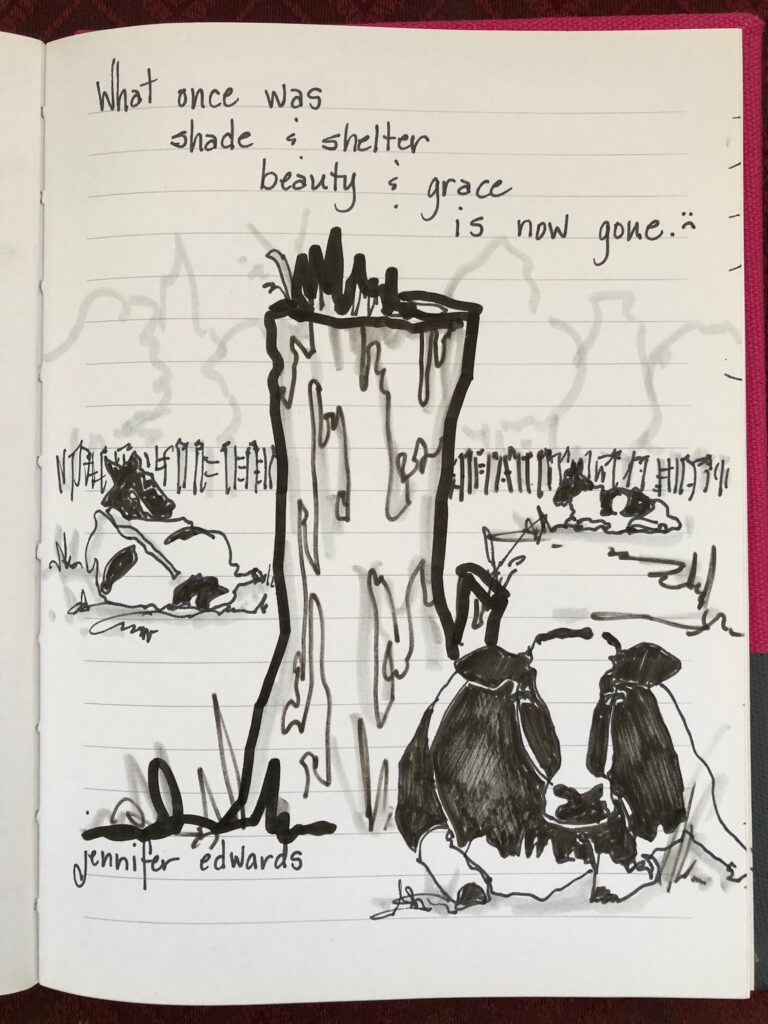 What once was
shade & shelter
beauty & grace
is now gone. :(
jennifer edwards